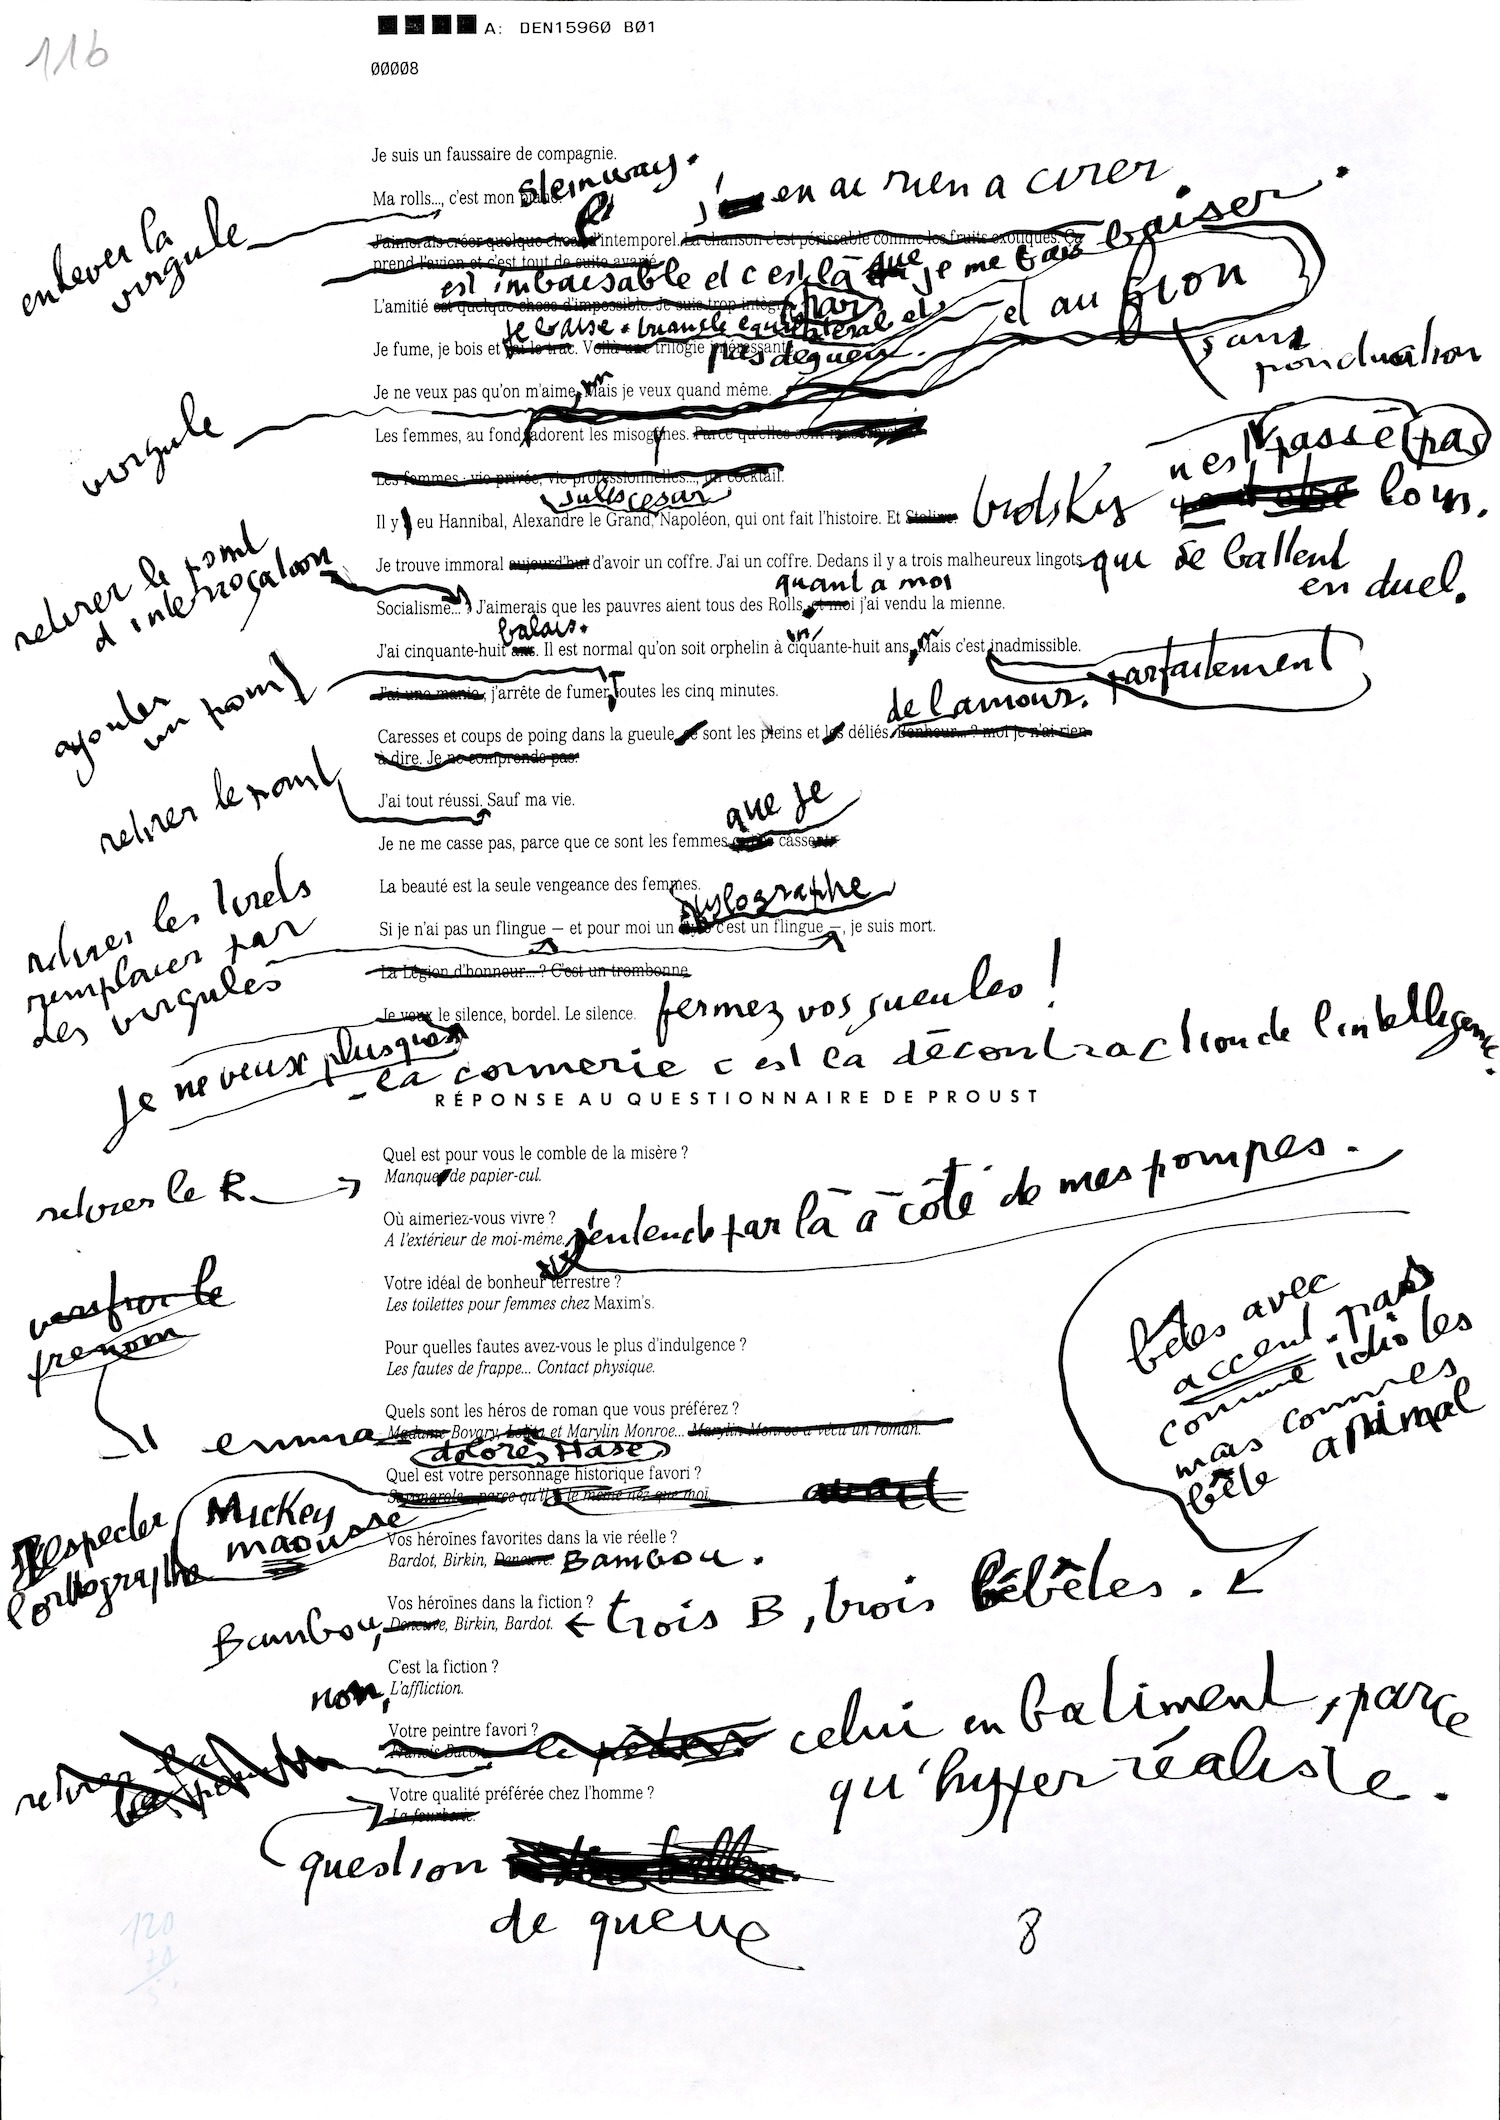 116
A: DEN15960 B01
00008
Je suis un faussaire de compagnie.
Steinway.
Ma rolls..., c'est mon piano.
enlever la
virgule
j' en ai rien a cirer
J'aimerais créer quelque chose d'intemporel. La chanson c'est périssable comme les fruits exotiques. Ca
prend l'avion et c'est tout de suite avarié.
est imbaisable et c est là que je me fais baiser.
L'amitié est quelque chose d'impossible. Je suis trop intègre
pars
et au fion
je baise. triangle equilateral et
Je fume, je bois et j'ai le trac. Voilà une trilogie intéressante.
pas de gueu
sans
ponctuation
Je ne veux pas qu'on m'aime, Mais je veux quand même.
virgule
Les femmes, au fond, adorent les misogynes. Parce qu'elles sont masochistes.
Les femmes : vie privée, vie professionnelles..., un cocktail.
Jules cesar
Il y eu Hannibal, Alexandre le Grand, Napoléon, qui ont fait l'histoire. Et Staline.
trotskis n'est passé pas loin.
Je trouve immoral aujourd'hui d'avoir un coffre. J'ai un coffre. Dedans il y a trois malheureux lingots
qui se battent
en duel.
retirer le point
d'interrogation
quant a moi
Socialisme... ? J'aimerais que les pauvres aient tous des Rolls, et moi j'ai vendu la mienne.
balais.
J'ai cinquante-huit ans. Il est normal qu'on soit orphelin à ciquante-huit ans, Mais c'est inadmissible.
parfaitement
ajouter
un point
J'ai une manie, j'arrête de fumer, Toutes les cinq minutes.
de l amour.
Caresses et coups de poing dans la gueule, ce sont les pleins et les déliés. Bonheur... ? moi je n'ai rien
à dire. Je ne comprends pas.
retirer le point
J'ai tout réussi. Sauf ma vie.
que je
Je ne me casse pas, parce que ce sont les femmes cassent.
La beauté est la seule vengeance des femmes.
retirer les tirets
remplacer par
des virgules
stylographe
Si je n'ai pas un flingue – et pour moi un stylo c'est un flingue –, je suis mort.
La Légion d'honneur... ? C'est un trombonne
Je veux le silence, bordel. Le silence.
fermez vos gueules !
Je ne veux plus que
- la connerie c est la décontraction de l intelligence.
RÉPONSE AU QUESTIONNAIRE DE PROUST
Quel est pour vous le comble de la misère ?
Manquer de papier-cul.
retirer le R
Où aimeriez-vous vivre ?
A l'extérieur de moi-même.
j'entends par là à côté de mes pompes.
Votre idéal de bonheur terrestre ?
Les toilettes pour femmes chez Maxim's.
Pour quelles fautes avez-vous le plus d'indulgence ?
Les fautes de frappe... Contact physique.
prenom
Quels sont les héros de roman que vous préférez ?
emma
Madame Bovary, Lolita et Marylin Monroe... Marylin Monroe a vécu un roman.
dolorès Hase
Quel est votre personnage historique favori ?
Savonarole... parce qu'il a le même nez que moi
Mickey
maousse
respecter
l'orthographe
Vos héroïnes favorites dans la vie réelle ?
Bardot, Birkin, Deneuve.
Bambou.
bêtes avec
accent. pas
comme idiotes
mais commes
bête animal
Vos héroïnes dans la fiction ?
Bambou,
Deneuve, Birkin, Bardot.
← trois B, trois bébêtes.
C'est la fiction ?
non,
L'affliction.
Votre peintre favori ?
Francis Bacon
celui en batiment, parce
qu'hyper réaliste.
Votre qualité préférée chez l'homme ?
La fourberie.
question
de queue
8
120